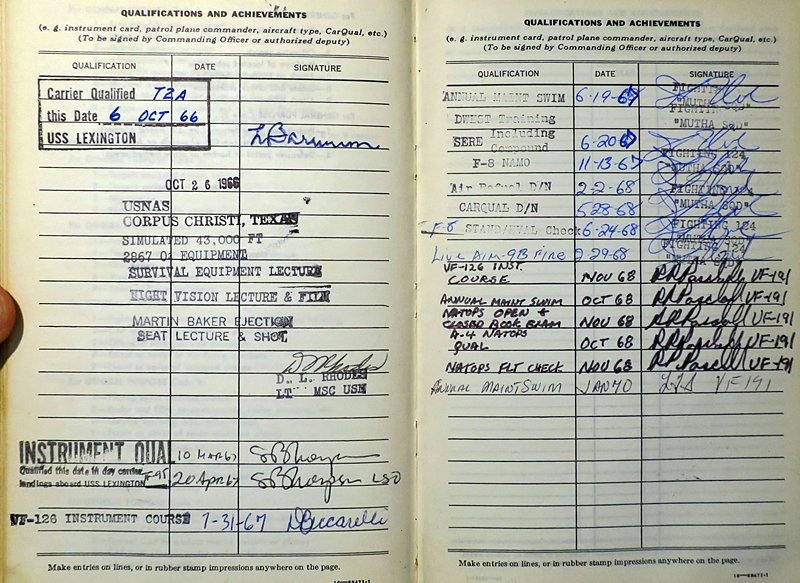 QUALIFICATIONS AND ACHIEVEMENTS
(e. g. instrument card, patrol plane commander, aircraft type, CarQual, etc.)
(To be signed by Commanding Officer or authorized deputy)
QUALIFICATION DATE SIGNATURE
Carrier Qualified T2A
this Date 6 OCT 66
USS LEXINGTON
OCT 26 1966
USNAS
CORPUS CHRISTI, TEXAS
SIMULATED 43,000 FT
2867 O2 EQUIPMENT
SURVIVAL EQUIPMENT LECTURE
NIGHT VISION LECTURE & FILM
MARTIN BAKER EJECTION
SEAT LECTURE & SHOT
D. L. RHODES
LT MSC USN
INSTRUMENT QUAL 10 MAR 67
Qualified this date in day carrier
landings aboard USS LEXINGTON 20 APR 67 LSO
VF-126 INSTRUMENT COURSE 7-31-67
Make entries on lines, or in rubber stamp impressions anywhere on the page.
QUALIFICATIONS AND ACHIEVEMENTS
(e. g. instrument card, patrol plane commander, aircraft type, CarQual, etc.)
(To be signed by Commanding Officer or authorized deputy)
QUALIFICATION DATE SIGNATURE
ANNUAL MAINT SWIM 6-19-67 FIGHTING
"MUTHA SOD"
DWEST Training FIGHTING 124
"MUTHA SOD"
SERE Including Compound 6-20-67
F-8 NAMO 11-13-67 FIGHTING 124
"MUTHA SOD"
Air Refuel D/N 2-2-68 FIGHTING 124
CARQUAL D/N 5-28-68 "MUTHA SOD"
F-8 STAND/EVAL Check 6-24-68 FIGHTING 124
"MUTHA SOD"
Live Aim-9B Fire 2-29-68 FIGHTING 124
VF-126 INST.
COURSE NOV 68 VF-191
ANNUAL MAINT SWIM OCT 68 VF-191
NATOPS OPEN +
CLOSED BOOK EXAM NOV 68 VF-191
A-4 NATOPS
QUAL OCT 68 VF-191
NATOPS FLT CHECK NOV 68 VF-191
ANNUAL MAINT SWIM JAN 70 VF 191
Make entries on lines, or in rubber stamp impressions anywhere on the page.